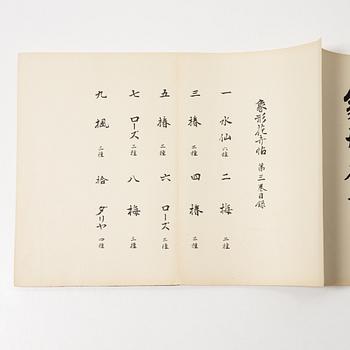 象形花卉帖 第三巻目録
一 水仙 八種 二 梅 二種
三 椿 二種 四 椿 二種
五 椿 二種 六 ローズ 二種
七 ローズ 二種 八 梅 三種
九 楓 二種 拾 ダリヤ 四種